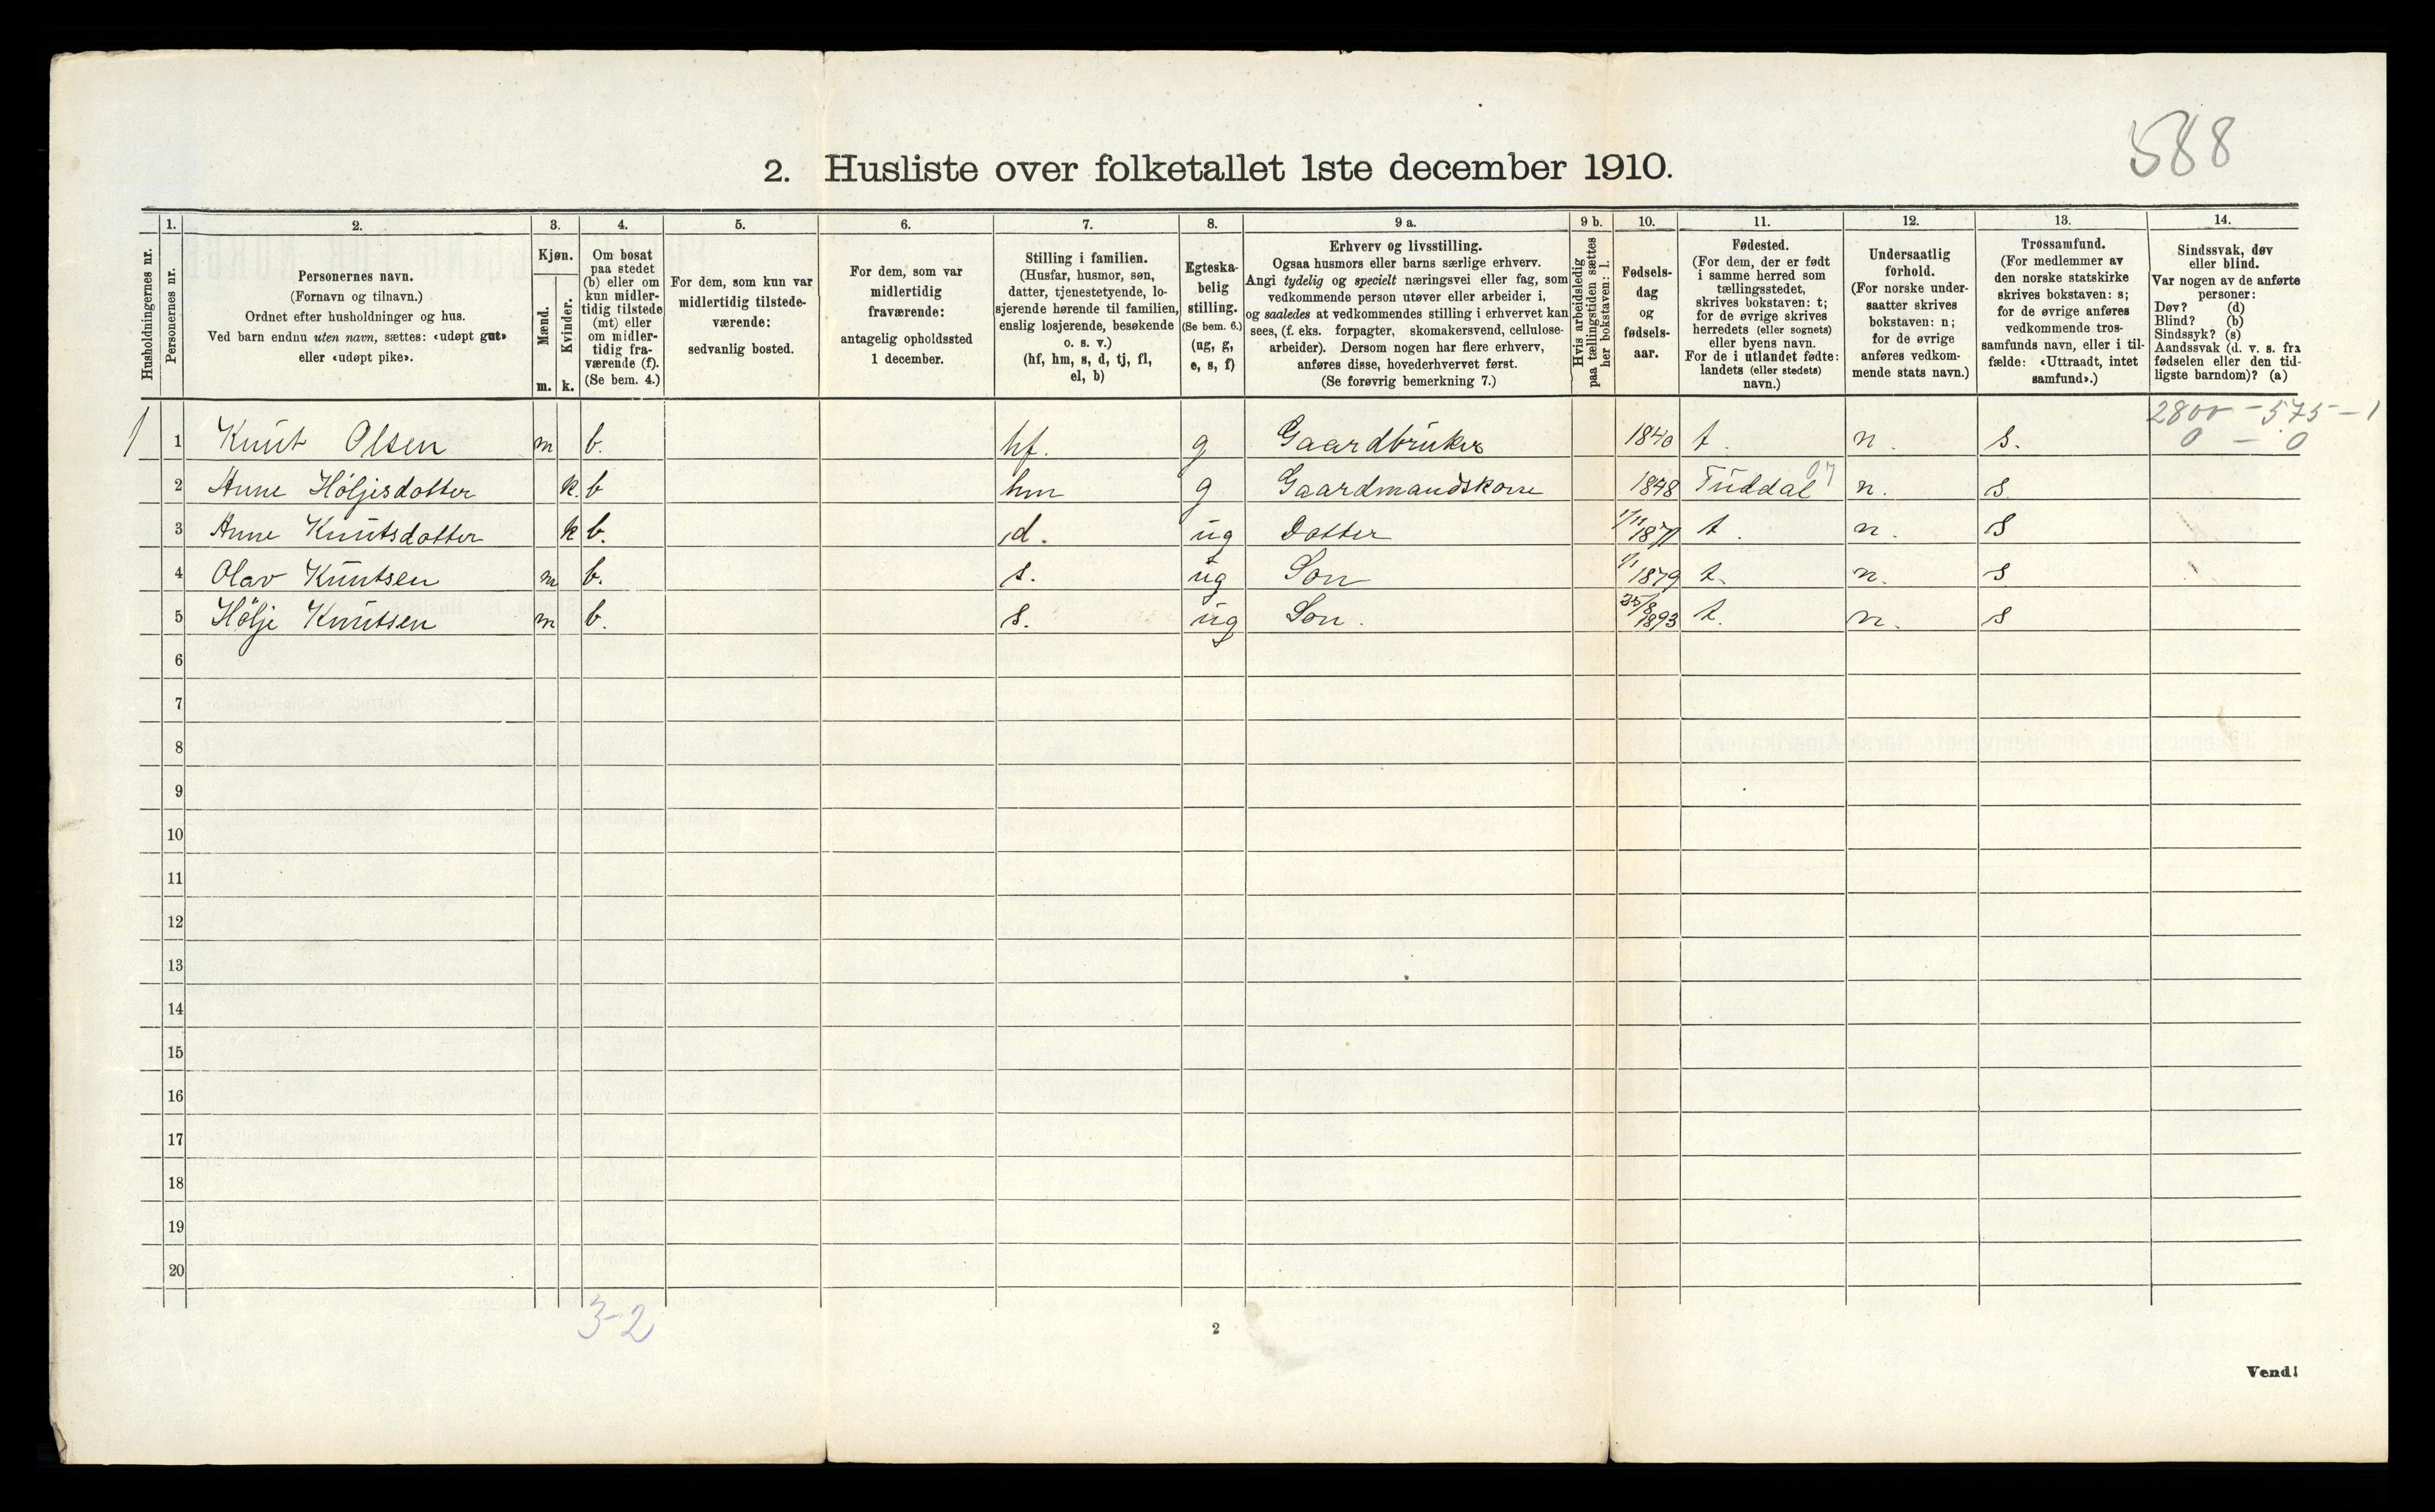 588
2. Husliste over folketallet 1ste december 1910.
Husholdningernes nr.
1.
Personernes nr.
2.
Personernes navn.
(Fornavn og tilnavn.)
Ordnet efter husholdninger og hus.
Ved barn endnu uten navn, sættes: «udøpt gut»
eller «udøpt pike».
3.
Kjøn.
Mænd.
Kvinder.
m. k.
4.
Om bosat
paa stedet
(b) eller om
kun midler-
tidig tilstede
(mt) eller
om midler-
tidig fra-
værende (f).
(Se bem. 4.)
5.
For dem, som kun var
midlertidig tilstede-
værende:
sedvanlig bosted.
6.
For dem, som var
midlertidig
fraværende:
antagelig opholdssted
1 december.
7.
Stilling i familien.
(Husfar, husmor, søn,
datter, tjenestetyende, lo-
sjerende hørende til familien,
enslig losjerende, besøkende
o. s. v.)
(hf, hm, s, d, tj, fl,
el, b)
8.
Egteska-
belig
stilling.
(Se bem. 6.)
(ug, g,
e, s, f)
9 a.
Erhverv og livsstilling.
Ogsaa husmors eller barns særlige erhverv.
Angi tydelig og specielt næringsvei eller fag, som
vedkommende person utøver eller arbeider i,
og saaledes at vedkommendes stilling i erhvervet kan
sees, (f. eks. forpagter, skomakersvend, cellulose-
arbeider). Dersom nogen har flere erhverv,
anføres disse, hovederhvervet først.
(Se forøvrig bemerkning 7.)
9 b.
Hvis arbeidsledig
paa tællingstiden sættes
her bokstaven: l.
10.
Fødsels-
dag
og
fødsels-
aar.
11.
Fødested.
(For dem, der er født
i samme herred som
tællingsstedet,
skrives bokstaven: t;
for de øvrige skrives
herredets (eller sognets)
eller byens navn.
For de i utlandet fødte:
landets (eller stedets)
navn.)
12.
Undersaatlig
forhold.
(For norske under-
saatter skrives
bokstaven: n;
for de øvrige
anføres vedkom-
mende stats navn.)
13.
Trossamfund.
(For medlemmer av
den norske statskirke
skrives bokstaven: s;
for de øvrige anføres
vedkommende tros-
samfunds navn, eller i til-
fælde: «Uttraadt, intet
samfund».)
14.
Sindssvak, døv
eller blind.
Var nogen av de anførte
personer:
Døv? (d)
Blind? (b)
Sindssyk? (s)
Aandssvak (d. v. s. fra
fødselen eller den tid-
ligste barndom)? (a)
2800 - 575 - 1
1 1 Knut Olsen m b. hf. g Gaardbruker 1840 t. n. s. 0 - 0
2 Anne Höljesdotter k. b hm g Gaardmandskone 1848 Tuddal 07 n. s
3 Anne Knutsdotter k b. d. ug Dotter 1/11 1877 t. n. s
4 Olav Knutsen m b. s. ug Son 1/1 1879 t. n. s
5 Hölje Knutsen m b. s. ug Son. 25/8 1893 t. n. s
6
7
8
9
10
11
12
13
14
15
16
17
18
19
20
3-2
2
Vend!